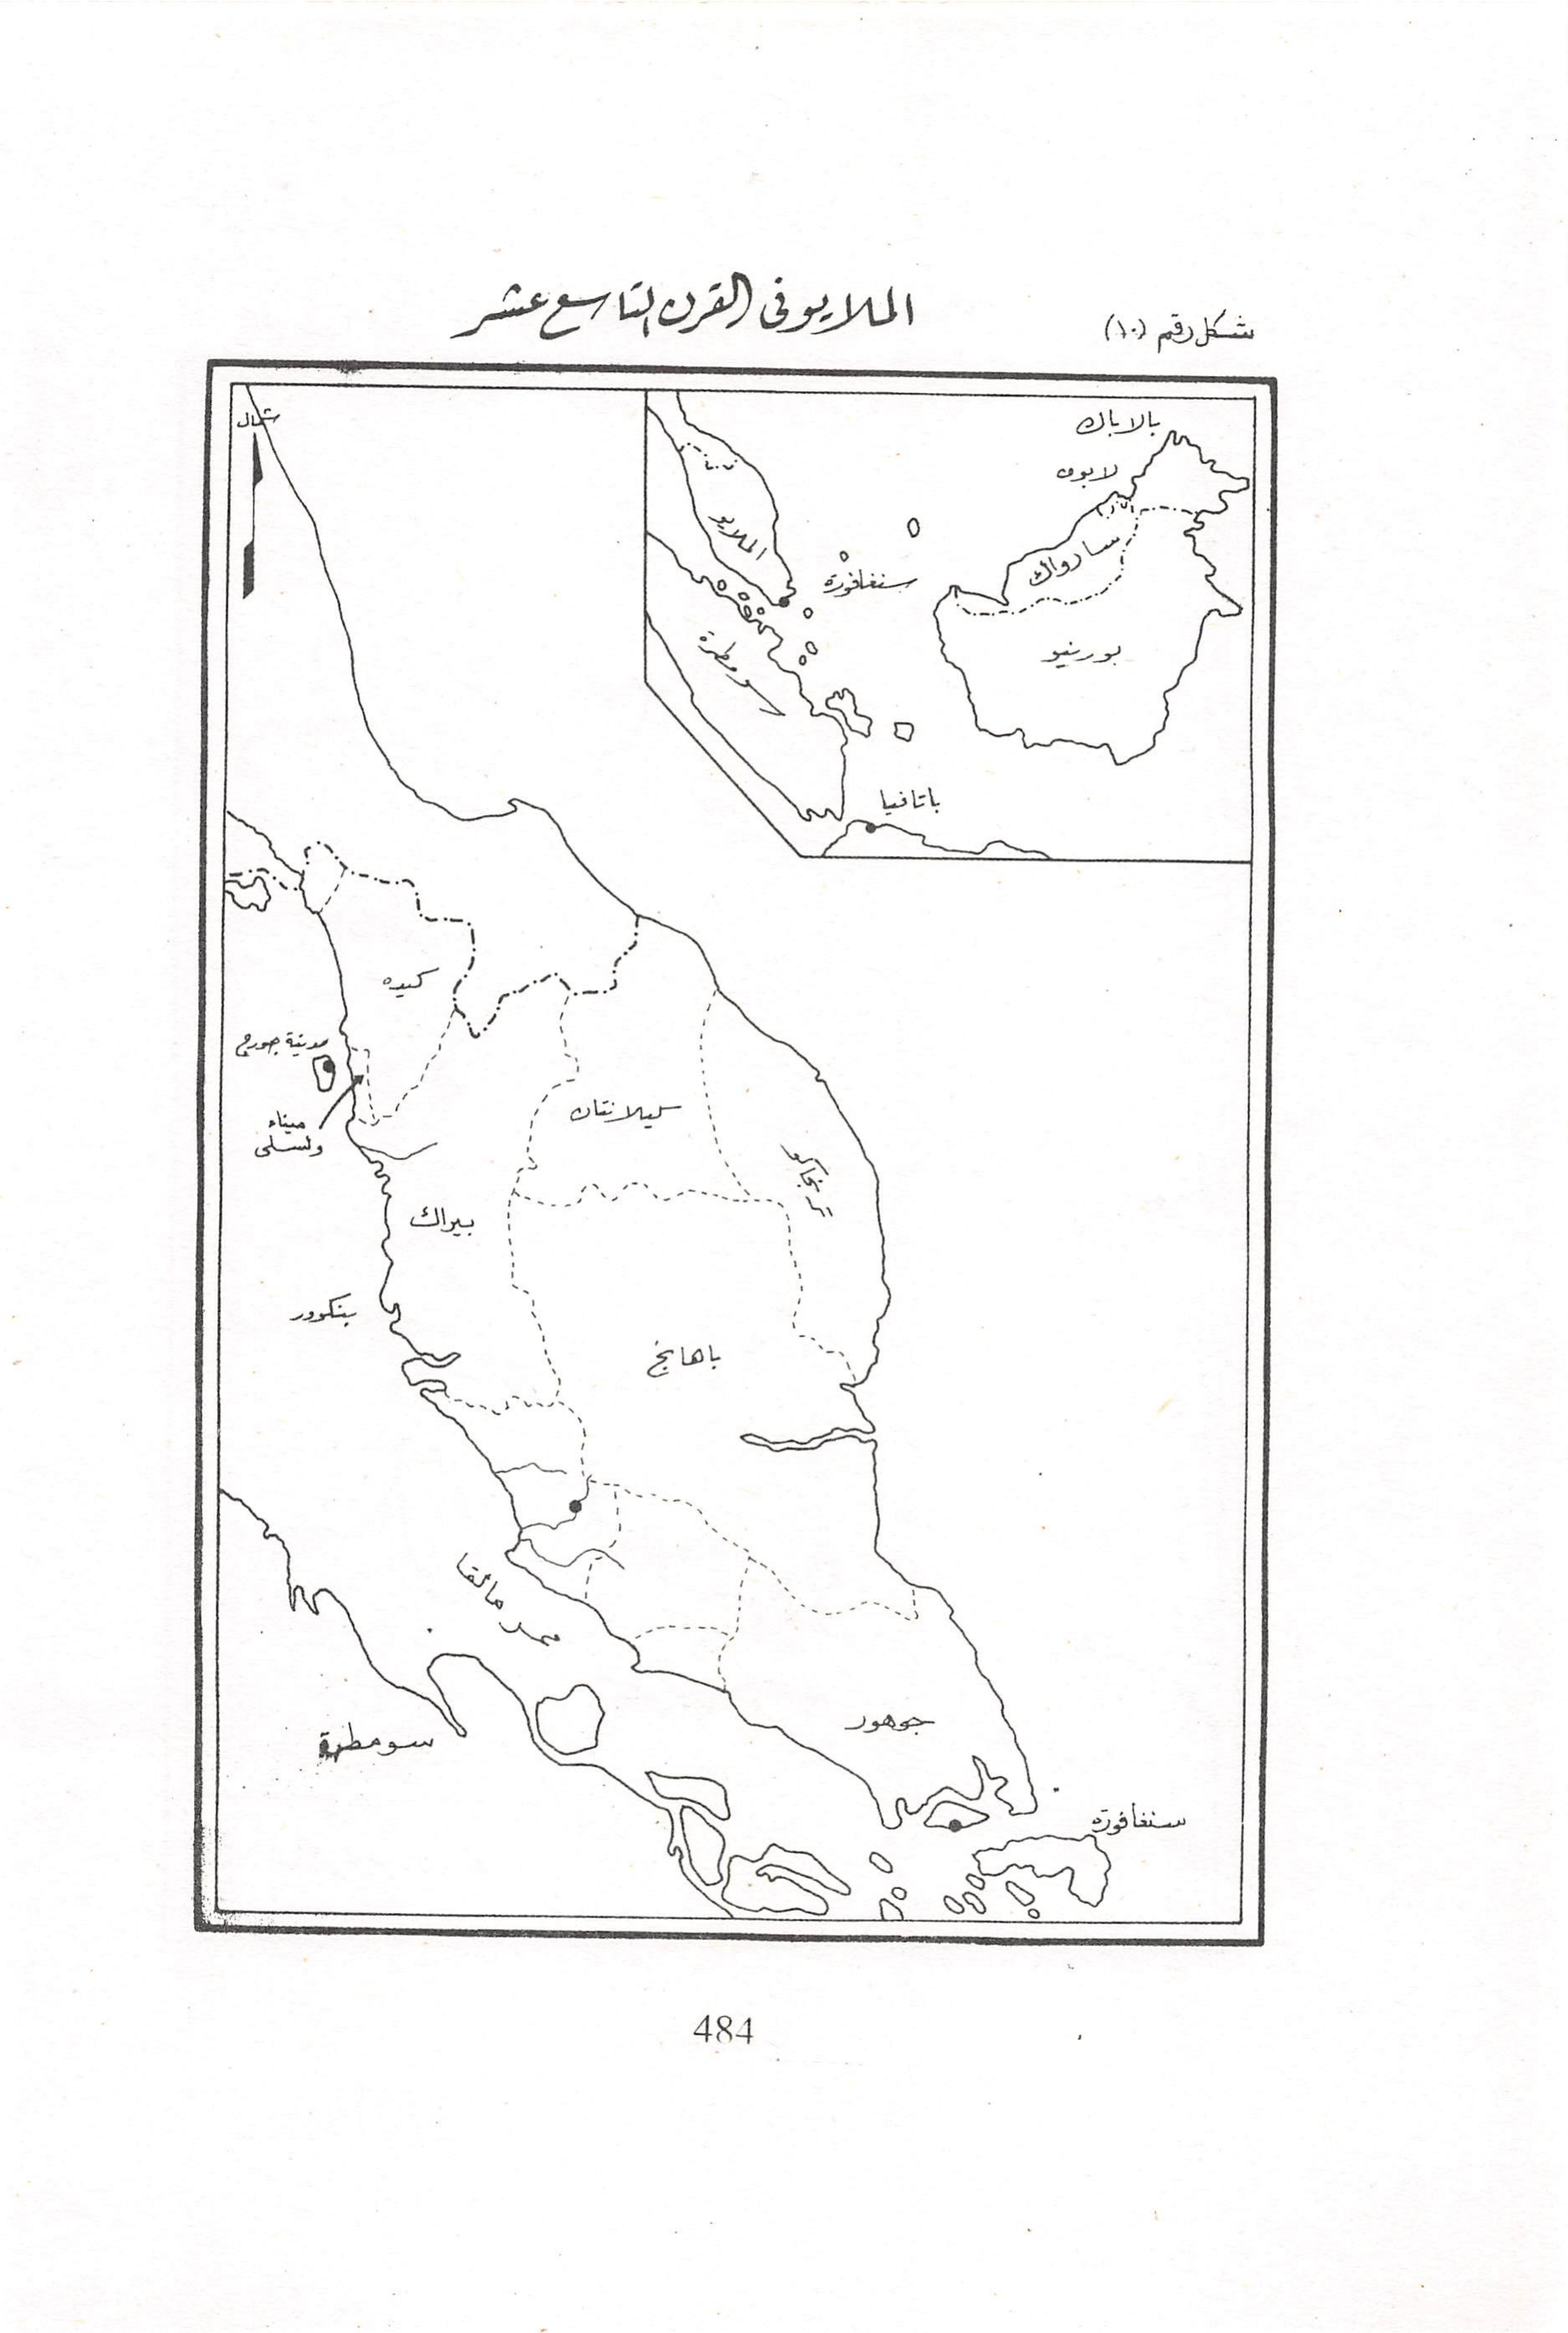 شكل رقم (١٠)
الملايو فى القرن التاسع عشر
شمال
بالاباك
لابون
ساراواك
بورنيو
الملايو
سنغافورة
سومطرة
باتافيا
كيده
مدينة جورج
ميناء
ولسلى
كيلانتان
بيراك
بنكوور
باهانج
جوهور
سومطرة
سنغافورة
484